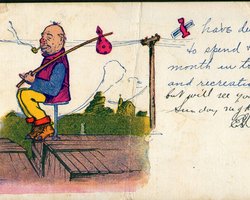 have de
to spend
month in
and recreati
but will see yo
Sunday nig